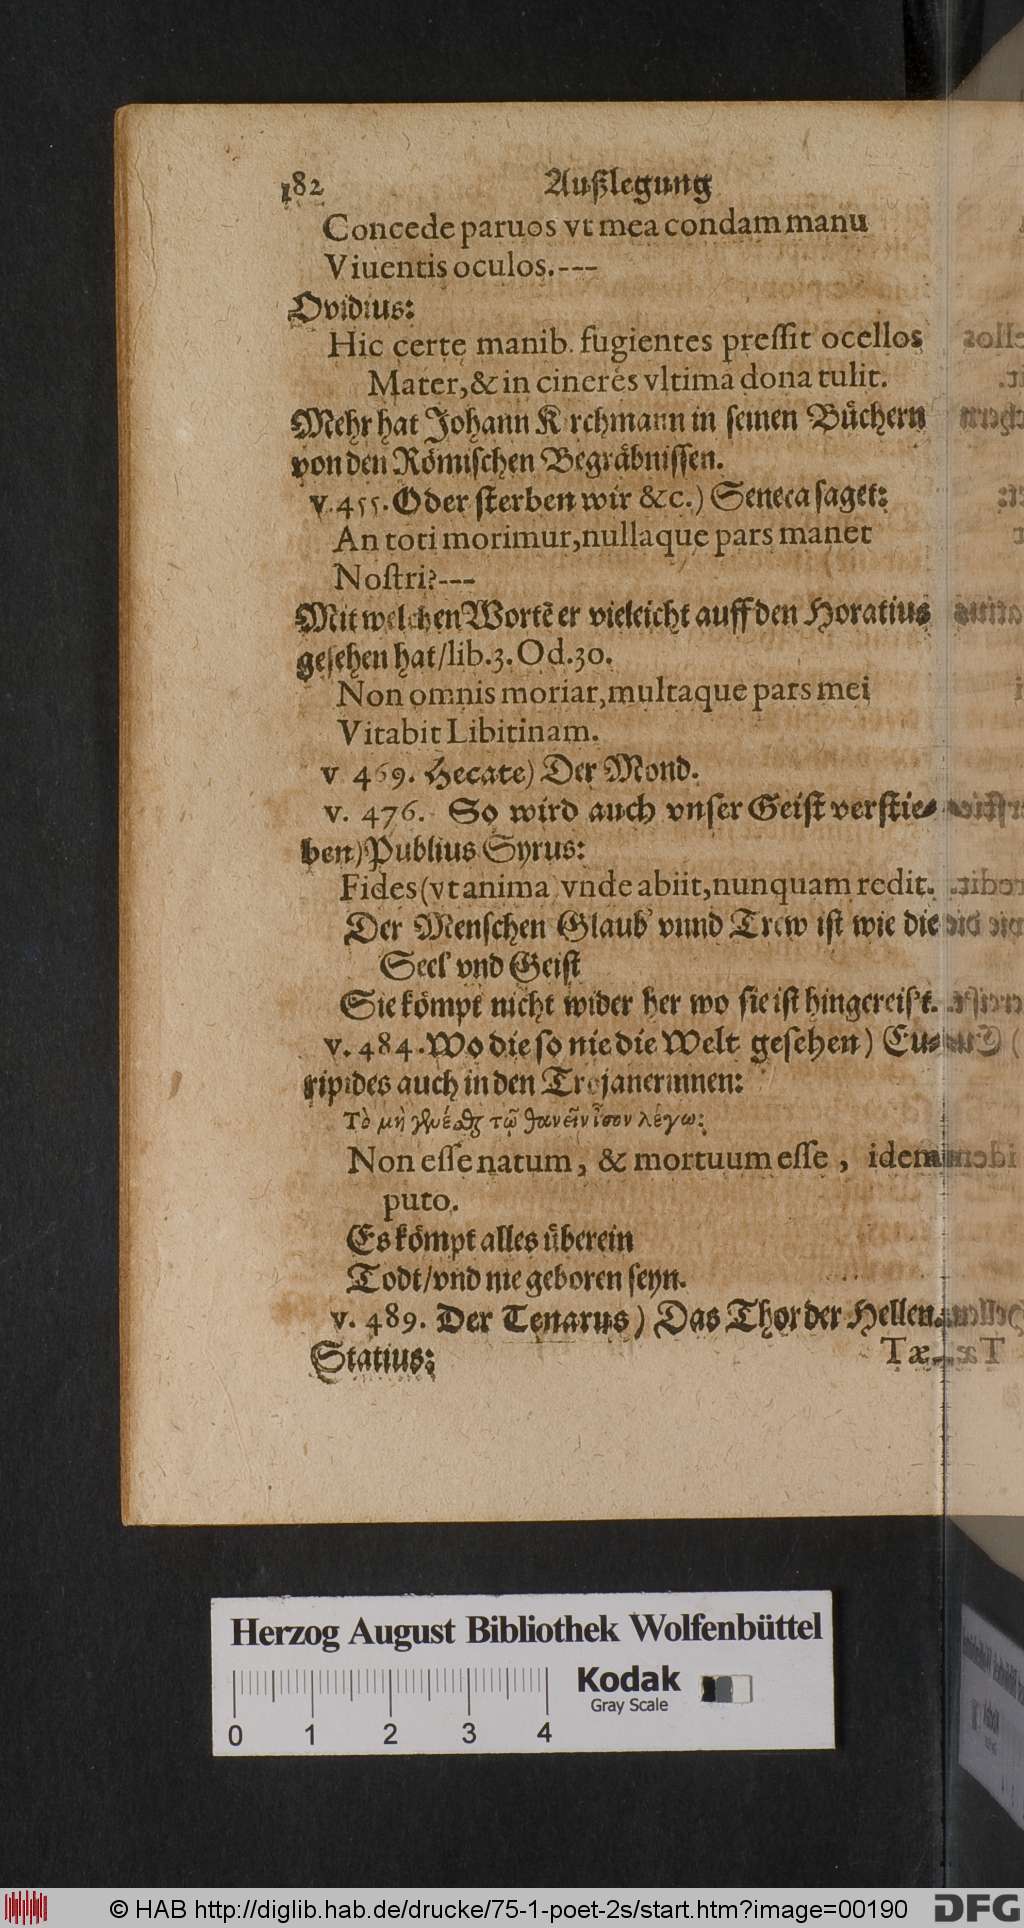 182 Außlegung
Concede paruos vt mea condam manu
Viuentis oculos.---
Ovidius:
Hic certe manib. fugientes pressit ocellos
Mater, & in cineres vltima dona tulit.
Mehr hat Johann Kirchmann in seinen Büchern
von den Römischen Begräbnissen.
v. 455. Oder sterben wir &c.) Seneca saget:
An toti morimur, nullaque pars manet
Nostri?---
Mit welchen Wortẽ er vieleicht auff den Horatius
gesehen hat/ lib. 3. Od. 30.
Non omnis moriar, multaque pars mei
Vitabit Libitinam.
v 469. Hecate) Der Mond.
v. 476. So wird auch vnser Geist verstie-
ben) Publius Syrus:
Fides (vt anima vnde abiit, nunquam redit.
Der Menschen Glaub' vnnd Trew ist wie die
Seel' vnd Geist
Sie kömpt nicht wider her wo sie ist hingereist.
v. 484. Wo die so nie die Welt gesehen) Eu-
ripides auch in den Trojanerinnen:
Τὸ μὴ γενέσθαι τῷ θανεῖν ἶσον λέγω:
Non esse natum, & mortuum esse, idem
puto.
Es kömpt alles überein
Todt/ vnd nie geboren seyn.
v. 489. Der Tenarus) Das Thor der Hellen.
Statius:
Tæ-
Herzog August Bibliothek Wolfenbüttel
Kodak
Gray Scale
0 1 2 3 4
© HAB http://diglib.hab.de/drucke/75-1-poet-2s/start.htm?image=00190
DFG